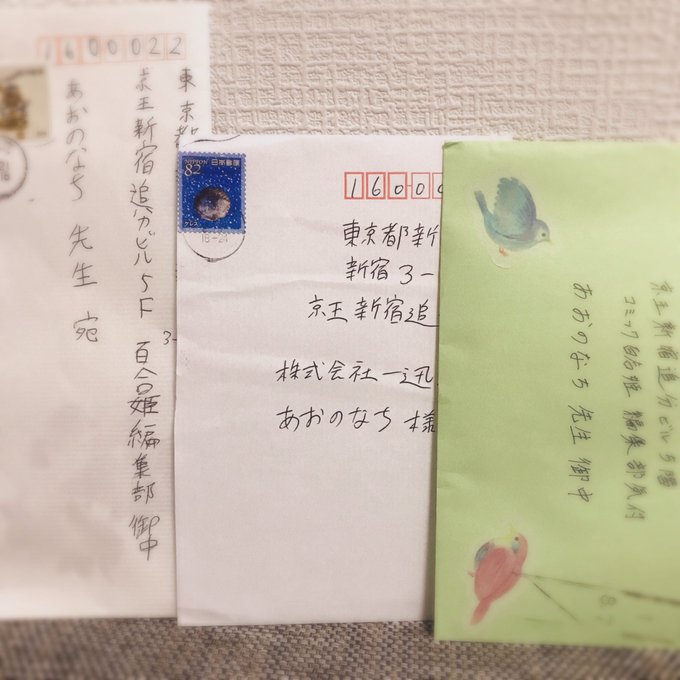 1600022
東京都
京王新宿追分ビル5F 百合姫編集部 御中
あおのなち 先生 宛
NIPPON 日本郵便
82
ケレス
18-24
1600
東京都新
新宿3-
京王新宿追
株式会社一迅
あおのなち 様
3-
京王新宿追分ビル5階
コミック百合姫 編集部気付
あおのなち 先生 御中